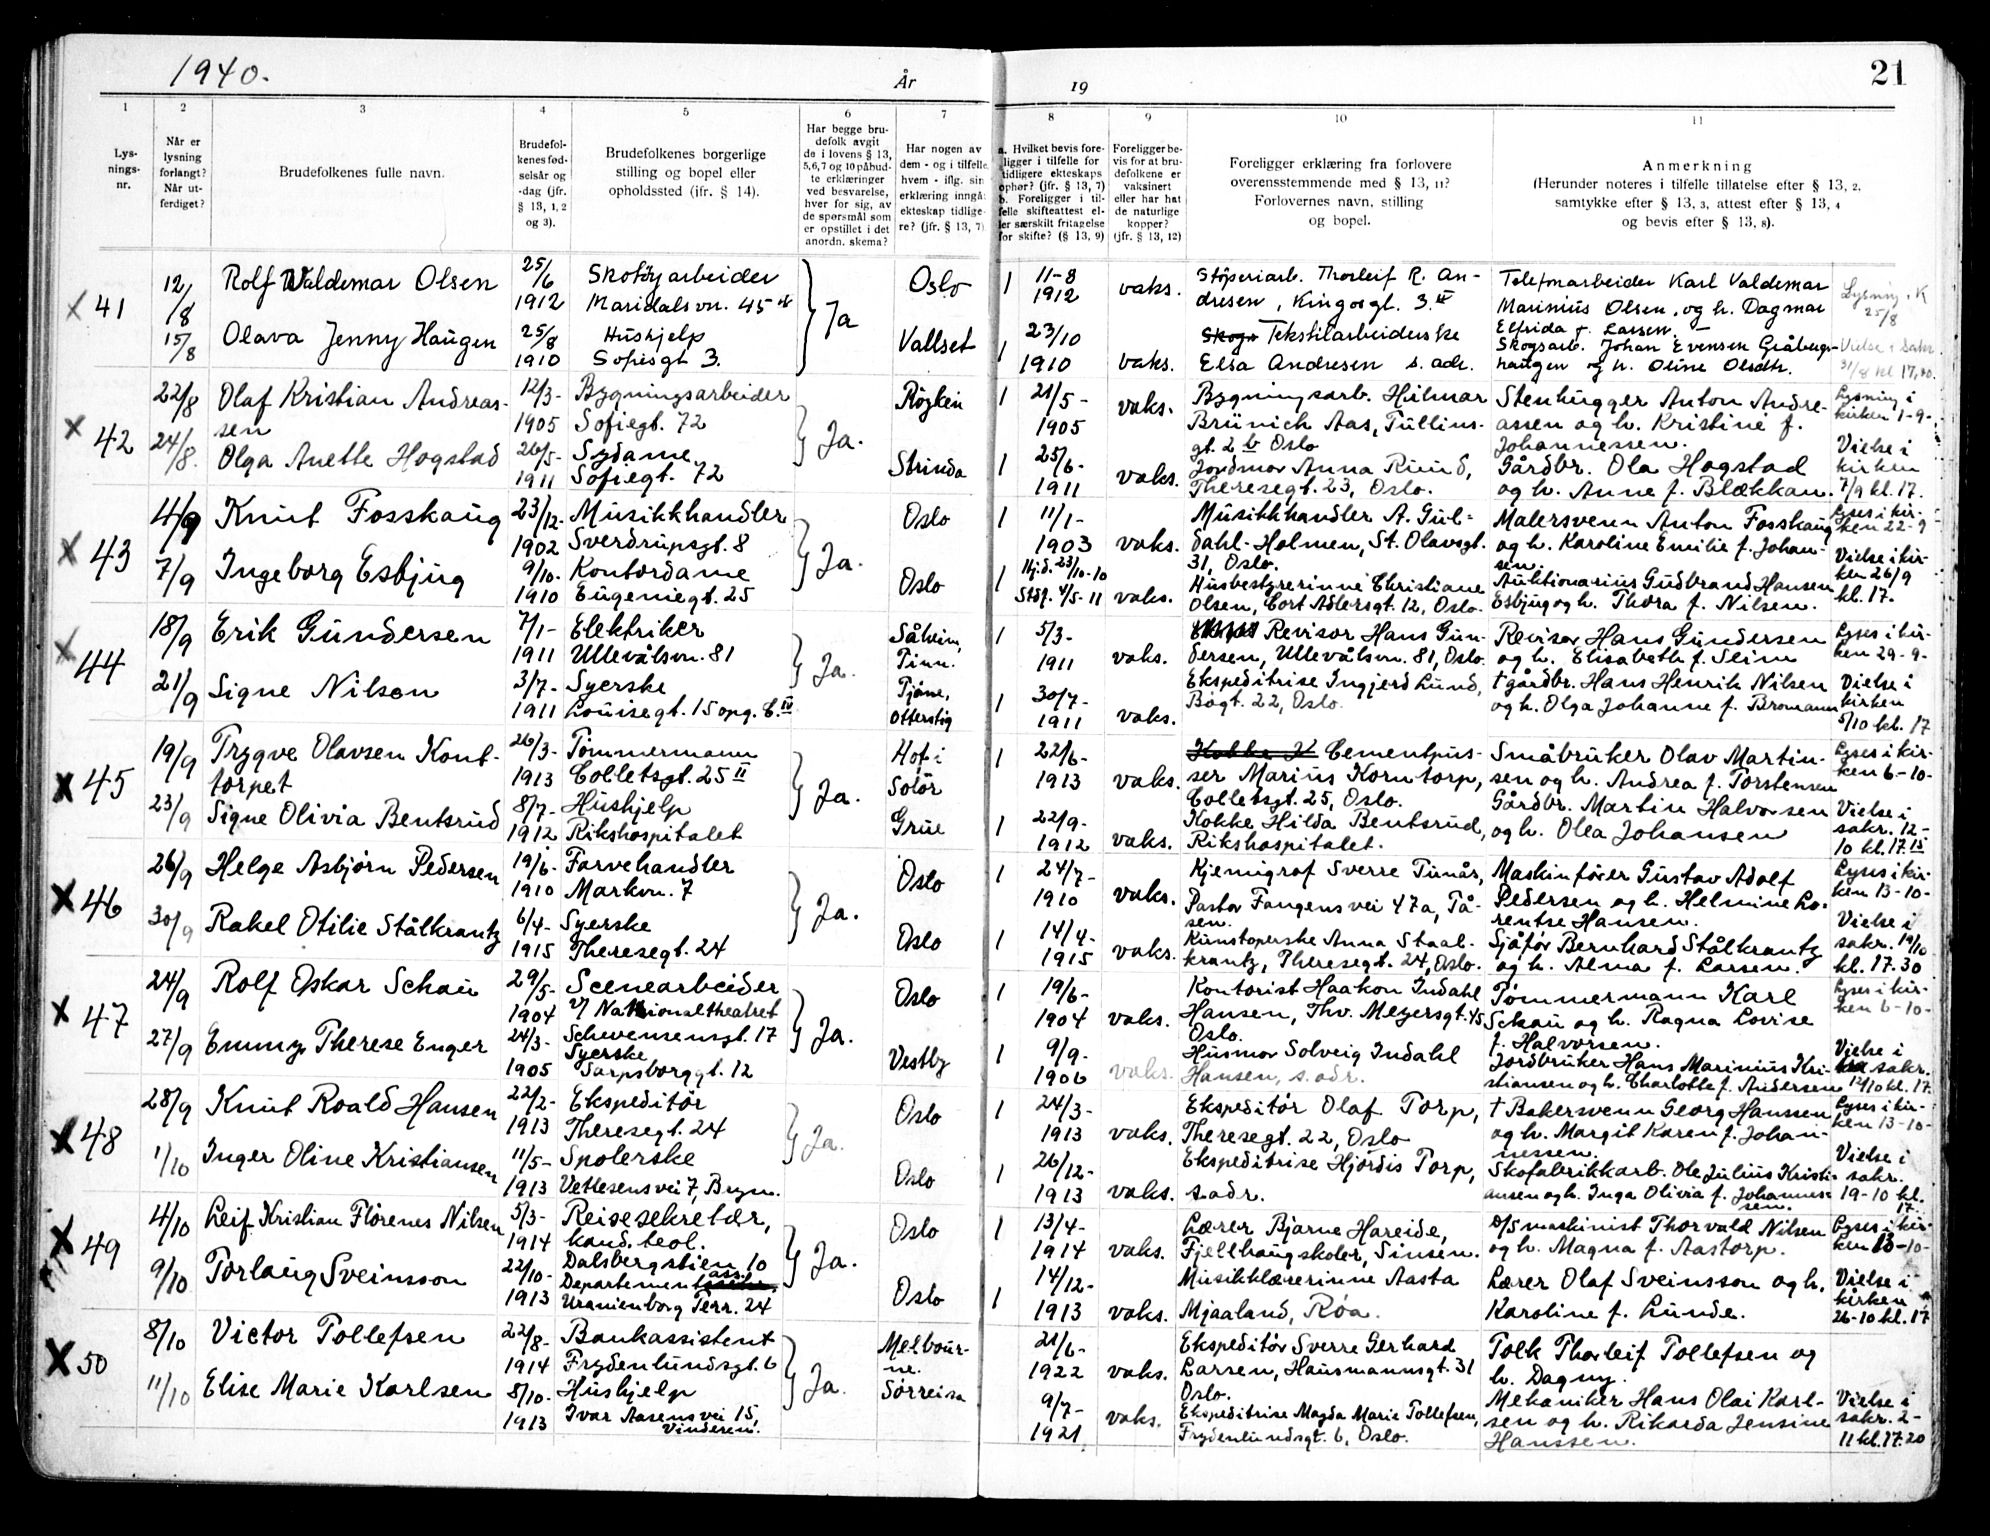 1940.
År
19
21
1
2
3
4
5
6
7
8
9
10
11
Lys-
nings-
nr.
Når er
lysning
forlangt?
Når ut-
ferdiget?
Brudefolkenes fulle navn.
Brudefol-
kenes fød-
selsår og
-dag (jfr.
§ 13, 1, 2
og 3).
Brudefolkenes borgerlige
stilling og bopel eller
opholdssted (ifr. § 14).
Har begge bru-
defolk avgit
de i lovens § 13,
5,6,7 og 10 påbud-
te erklæringer
ved besvarelse,
hver for sig, av
de spørsmål som
er opstillet i det
anordn. skema?
Har nogen av
dem - og i tilfelle
hvem - iflg. sin
erklæring inngåt
ekteskap tidlige-
re? (jfr. § 13, 7)
a. Hvilket bevis fore-
ligger i tilfelle for
tidligere ekteskaps
ophør? (jfr. § 13, 7)
b. Foreligger i til-
felle skifteattest el-
ler særskilt fritagelse
for skifte? (§ 13, 9)
Foreligger be-
vis for at bru-
defolkene er
vaksinert
eller har hat
de naturlige
kopper?
(jfr. § 13, 12)
Foreligger erklæring fra forlovere
overensstemmende med § 13, 11?
Forlovernes navn, stilling
og bopel.
Anmerkning
(Herunder noteres i tilfelle tillatelse efter § 13, 2,
samtykke efter § 13, 3, attest efter § 13, 4
og bevis efter § 13, 8).
x 41
12/8
15/8
Rolf Valdemar Olsen
Olava Jenny Haugen
25/6
1912
25/8
1910
Skotøyarbeider
Maridalsvn. 45
Hushjelp
Sofiesgt 3.
Ja
Oslo
Vallset
1 11-8
1912
1 23/10
1910
vaks.
vaks.
Støperiarb. Thorleif R. An-
dresen, Kingosgt. 3 III
Tekstilarbeiderske
Elsa Andresen s. adr.
Telefonarbeider Karl Valdemar
Marinius Olsen, og h. Dagmar
Elfrida f. Larsen.
Skogsarb. Johan Evensen Gråbergs-
haugen og h. Oline Olsdtr.
Lysning i K
25/8
Vielse i sakr.
31/8 kl 17,40.
x 42
22/8
24/8.
Olaf Kristian Andreas-
sen
Olga Anette Hogstad
12/3-
1905
26/5-
1911
Bygningsarbeider
Sofiegt. 72
Sydame
Sofiegt. 72
Ja.
Røyken
Strinda
1 21/5-
1905
1 25/6-
1911
vaks.
vaks.
Bygningsarb. Hilmar
Brünich Aas, Tullins-
gt. 2 b Oslo
Jordmor Anna Ruud,
Theresegt. 23, Oslo.
Stenhugger Anton Andre-
assen og h. Kristine f.
Johannessen.
Gårdbr. Ola Hogstad
og h. Anne f. Blækkan.
Lysning i
kirken 1-9-
Vielse i
kirken
7/9 kl. 17.
x 43
4/9
7/9
Knut Fosskaug
Ingeborg Esbjug
23/12-
1902
9/10-
1910
Musikkhandler
Sverdrupsgt. 8
Kontordame
Eugeniegt. 25
Ja.
Oslo
Oslo
1 11/1-
1903
1 Hj.d. 23/10-10
Stdf. 4/5-11
vaks.
vaks.
Musikkhandler A. Gul-
dahl-Holmen, St. Olavsgt.
31, Oslo.
Husbestyrerinne Christiane
Olsen, Cort Adlersgt. 12, Oslo.
Malersvenn Anton Fosskaug
og h. Karoline Emilie f. Johan-
sen.
Auktionarius Gudbrand Hansen
Esbjug og h. Thora f. Nilsen.
Lyses i kir-
ken 22-9
Vielse i kir-
ken 26/9
kl. 17.
x 44
18/9
21/9
Erik Gundersen
Signe Nilsen
7/1-
1911
3/7-
1911
Elektriker
Ullevålsvn. 81
Syerske
Louisegt. 15 opg. C. IV
Ja.
Såheim,
Tinn.
Tjøme,
Otterstig
1 5/3-
1911
1 30/7-
1911
vaks.
vaks.
Revisor Hans Gun-
dersen, Ullevålsvn. 81, Oslo.
Ekspeditrise Ingjerd Lund,
Bogt. 22, Oslo.
Revisor Hans Gundersen
og h. Elisabeth f. Seim
† gårdbr. Hans Henrik Nilsen
og h. Olga Johanne f. Bromann
Lyses i kir-
ken 29-9-
Vielse i
kirken
5/10 kl. 17
x 45
19/9
23/9
Trygve Olavsen Kont-
torpet
Signe Olivia Bentsrud
26/3-
1913
8/7-
1912
Tømmermann
Colletsgt. 25 II
Hushjelp
Rikshospitalet
Ja.
Hof i
Solør
Grue
1 22/6-
1913
1 22/9-
1912
vaks.
vaks.
Cementpus-
ser Marius Korntorp,
Colletsgt. 25, Oslo.
Kokke Hilda Bentsrud,
Rikshospitalet.
Småbruker Olav Martin-
sen og h. Andrea f. Torstensen
Gårdbr. Martin Halvorsen
og h. Olea Johansen
Lyses i kir-
ken 6-10-
Vielse i
sakr. 12-
10 kl. 17.15
x 46
26/9
30/9
Helge Asbjørn Pedersen
Rakel Otilie Stålkrantz
19/6-
1910
6/4-
1915
Farvehandler
Markvn. 7
Syerske
Theresegt. 24
Ja.
Oslo
Oslo
1 24/7-
1910
1 14/4-
1915
vaks.
vaks.
Kjemigraf Sverre Tunår,
Pastor Fangens vei 47a, Tå-
sen.
Kunstoperske Anna Staal-
krantz, Theresegt. 24, Oslo.
Maskinfører Gustav Adolf
Pedersen og h. Helmine Lo-
rentse Hansen.
Sjåfør Bernhard Stålkrantz
og h. Alma f. Larsen.
Lyses i kir-
ken 13-10-
Vielse i
sakr. 19/10
kl. 17.30
x 47
24/9
27/9
Rolf Oskar Schau
Emmy Therese Enger
29/5-
1904
24/3-
1905
Scenearbeider
v/ Nationaltheatret
Schwensensgt. 17
Syerske
Sarpsborggt. 12
Ja.
Oslo
Vestby
1 19/6-
1904
1 9/9-
1906
vaks.
vaks.
Kontorist Haakon Indahl
Hansen, Thv. Meyersgt. 45
Oslo.
Husmor Solveig Indahl
Hansen, s. adr.
Tømmermann Karl
Schau og h. Ragna Lovise
f. Halvorsen.
Jordbruker Hans Marinius Kri-
stiansen og h. Charlotte f. Andersen
Lyses i kir-
ken 6-10-
Vielse i
sakr.
12/10 kl. 17.
x 48
28/9
1/10
Knut Roald Hansen
Inger Oline Kristiansen
22/2-
1913
11/5-
1913
Ekspeditør
Theresegt. 24
Spolerske
Vetlesens vei 7, Bryn.
Ja.
Oslo
Oslo
1 24/3-
1913
1 26/12-
1913
vaks.
vaks.
Ekspeditør Olaf Torp,
Theresegt. 22, Oslo
Ekspeditrise Hjørdis Torp,
s. adr.
† Bakersvenn Georg Hanssen
og h. Margit Karen f. Johan-
nessen.
Skofabrikkarb. Ole Julius Kristi-
ansen og h. Inga Olivia f. Johannes-
sen.
Lyses i kir-
ken 13-10-
Vielse i
sakr.
19-10 kl.
17.
x 49
4/10
9/10
Leif Kristian Florenes Nilsen
Torlaug Sveinsson
5/3-
1914
22/10-
1913
Reisesekretær,
kand. teol.
Dalsbergstien 10
Departementsass.
Uranienborg Terr. 24
Ja.
Oslo
Oslo
1 13/4-
1914
1 14/12-
1913
vaks.
vaks.
Lærer Bjarne Hareide,
Fjellhaug skoler, Sinsen.
Musikklærerinne Aasta
Mjaaland, Røa.
D/S maskinist Thorvald Nilsen
og h. Magna f. Aastorp.
Lærer Olaf Sveinsson og h.
Karoline f. Lunde.
Lyses i kir-
ken 13-10-
Vielse i
kirken
26-10 kl. 17
x 50
8/10
11/10
Victor Tollefsen
Elise Marie Karlsen
22/8-
1914
8/10-
1913
Bankassistent
Frydenlundsgt. 6
Hushjelp
Ivar Aasens vei 15,
Vinderen.
Ja.
Melbour-
ne.
Sørreisa
21/6-
1922
9/7-
1921
vaks.
vaks.
Ekspeditør Sverre Gerhard
Larsen, Hausmannsgt. 31
Oslo.
Ekspeditrise Magda Marie Tollefsen,
Frydenlundsgt. 6, Oslo.
Tolk Thorleif Tollefsen og
h. Dagny.
Mekaniker Hans Olai Karl-
sen og h. Rikarda Jensine
Hanssen.
Vielse i
sakr. 2-
11 kl. 17.20